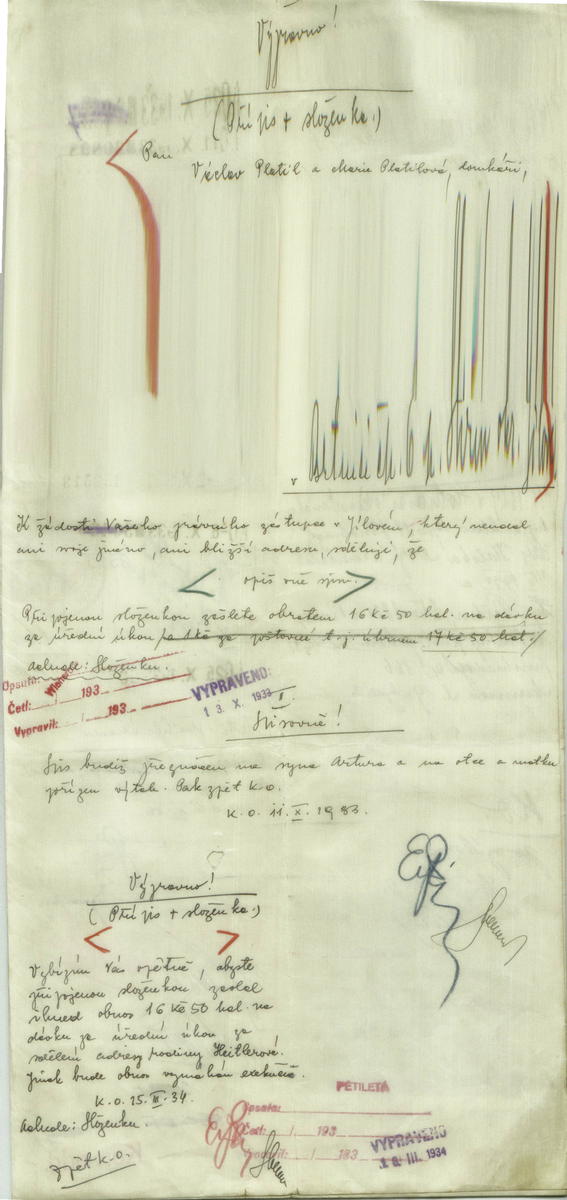 Výpravno!
(Přípis + složenka.)
Pan
Václav Platil a Marie Platilová, domkáři,
v
čp. 6 p.
K žádosti Vašeho právního zástupce v Jílovém, který neudal
ani svoje jméno, ani bližší adresu, sděluji, že
< opis vně >
Připojenou složenkou zašlete obratem 16 Kč 50 hal. na dávku
za úřední úkon /a 1 Kč za poštovné t.j. úhrnem 17 Kč 50 hal./
Adnude: Složenku.
Opsala:
Četl: / 193
Vypravil: / 193
VYPRAVENO:
1 3. X. 1933
I.
!
budiž přeznačen na syna Artura a na otce a matku
pořízen výtah. Pak zpět K.O.
K.O. 11. X. 1933.
Výpravno!
(Přípis + složenka.)
< >
Vybízím Vás opětně, abyste
připojenou složenkou zaslal
ihned obnos 16 Kč 50 hal. na
dávku za úřední úkon za
sdělení adresy rodiny Heitlerové.
Jinak bude obnos vymáhán exekučně.
K.O. 15. III. 34.
Adnude: Složenku.
zpět K.O.
PĚTILETÁ
Opsala:
Četl: / 193
Vypravil: / 193
VYPRAVENO
III. 1934